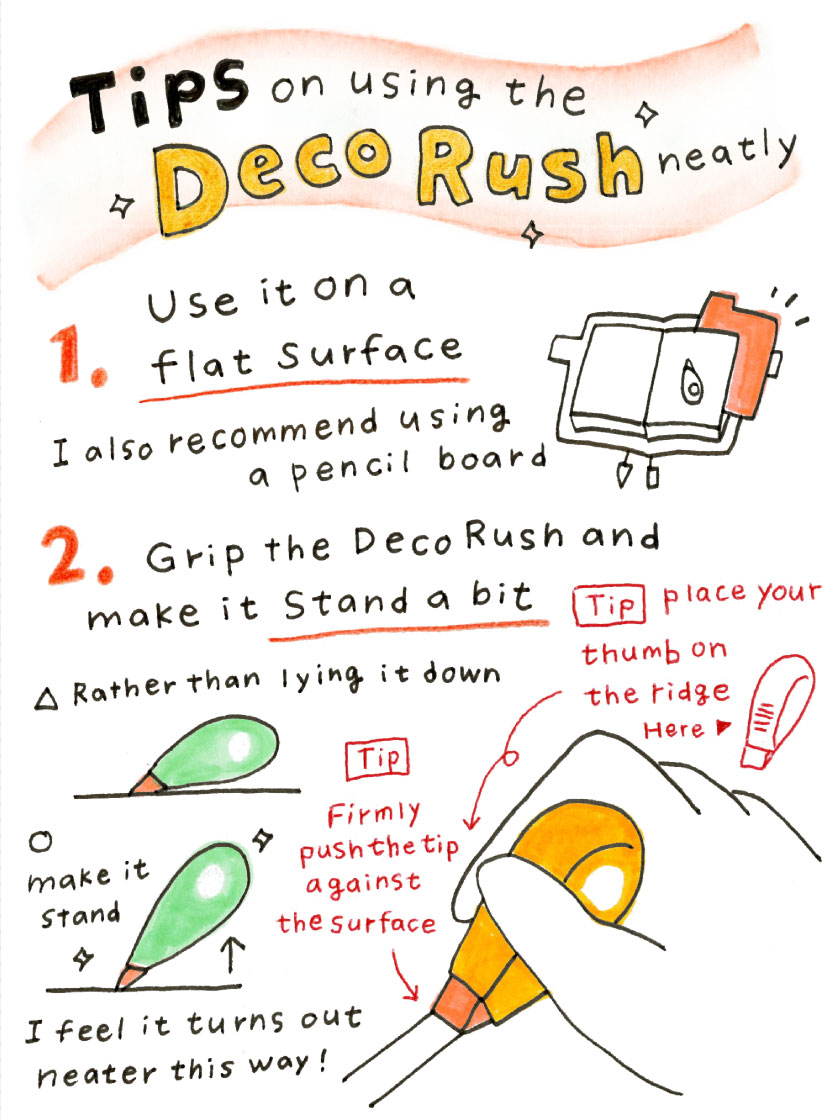 Tips on using the
Deco Rush neatly
1. Use it on a
flat surface
I also recommend using
a pencil board
2. Grip the Deco Rush and
make it Stand a bit
△ Rather than lying it down
Tip place your
thumb on
the ridge
Here ▶
Tip
Firmly
push the tip
against
the surface
○
make it
stand
I feel it turns out
neater this way!